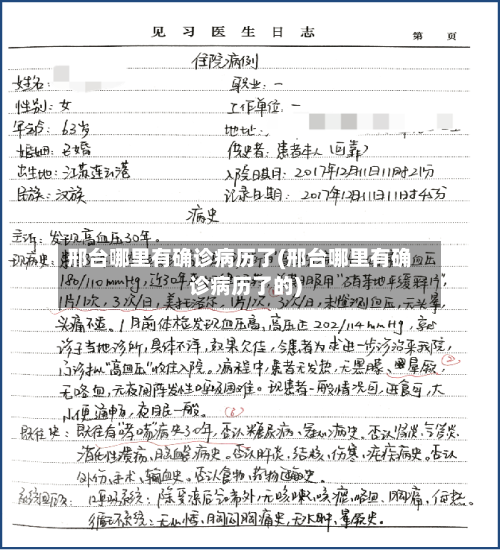 见习医生日志
第 页
住院病例
姓名: 职业: 一
性别: 女 工作单位: 一
年龄: 63岁 地址:
婚姻: 已婚 供史者: 患者本人(可靠)
出生地: 江苏连云港 入院日期: 2017年12月11日11时21分
民族: 汉族 记录日期: 2017年12月11日11时45分
病史
主诉: 发现高血压30年。
现病史: 患
邢台哪里有确诊病历了(邢台哪里有确
诊病历了的)
180/110mmHg,近30年 服用“ 缓释片”
1片/次,3次/日,美托洛尔,1片/次,3次/日,未监测血压,无头晕
头痛不适。1月前体检发现血压高,高压还202/114mmHg,就
诊于当地诊所,具体不详,效果欠佳,今患者为求进一步诊治来我院,
门诊拟“高血压”收住入院。病程中,患者无发热,无恶心、晕厥,
无咯血,无夜间阵发性呼吸困难。现患者一般情况可,进食可,大
小便通畅,夜眠一般。
既往史: 既往有“哮喘”病史30年,否认糖尿病、冠心病史。否认肾炎、气管炎、
消化性溃疡、脑血管病史。否认肝炎、结核、伤寒、疟疾病史。否认
外伤、手术、输血史。否认食物、药物过敏史。
系统回顾: 呼吸系统: 除受凉后 外,无咳嗽、咳痰、咯血、胸痛、
循环系统: 无心悸、胸闷胸痛史,无水肿、晕厥史。